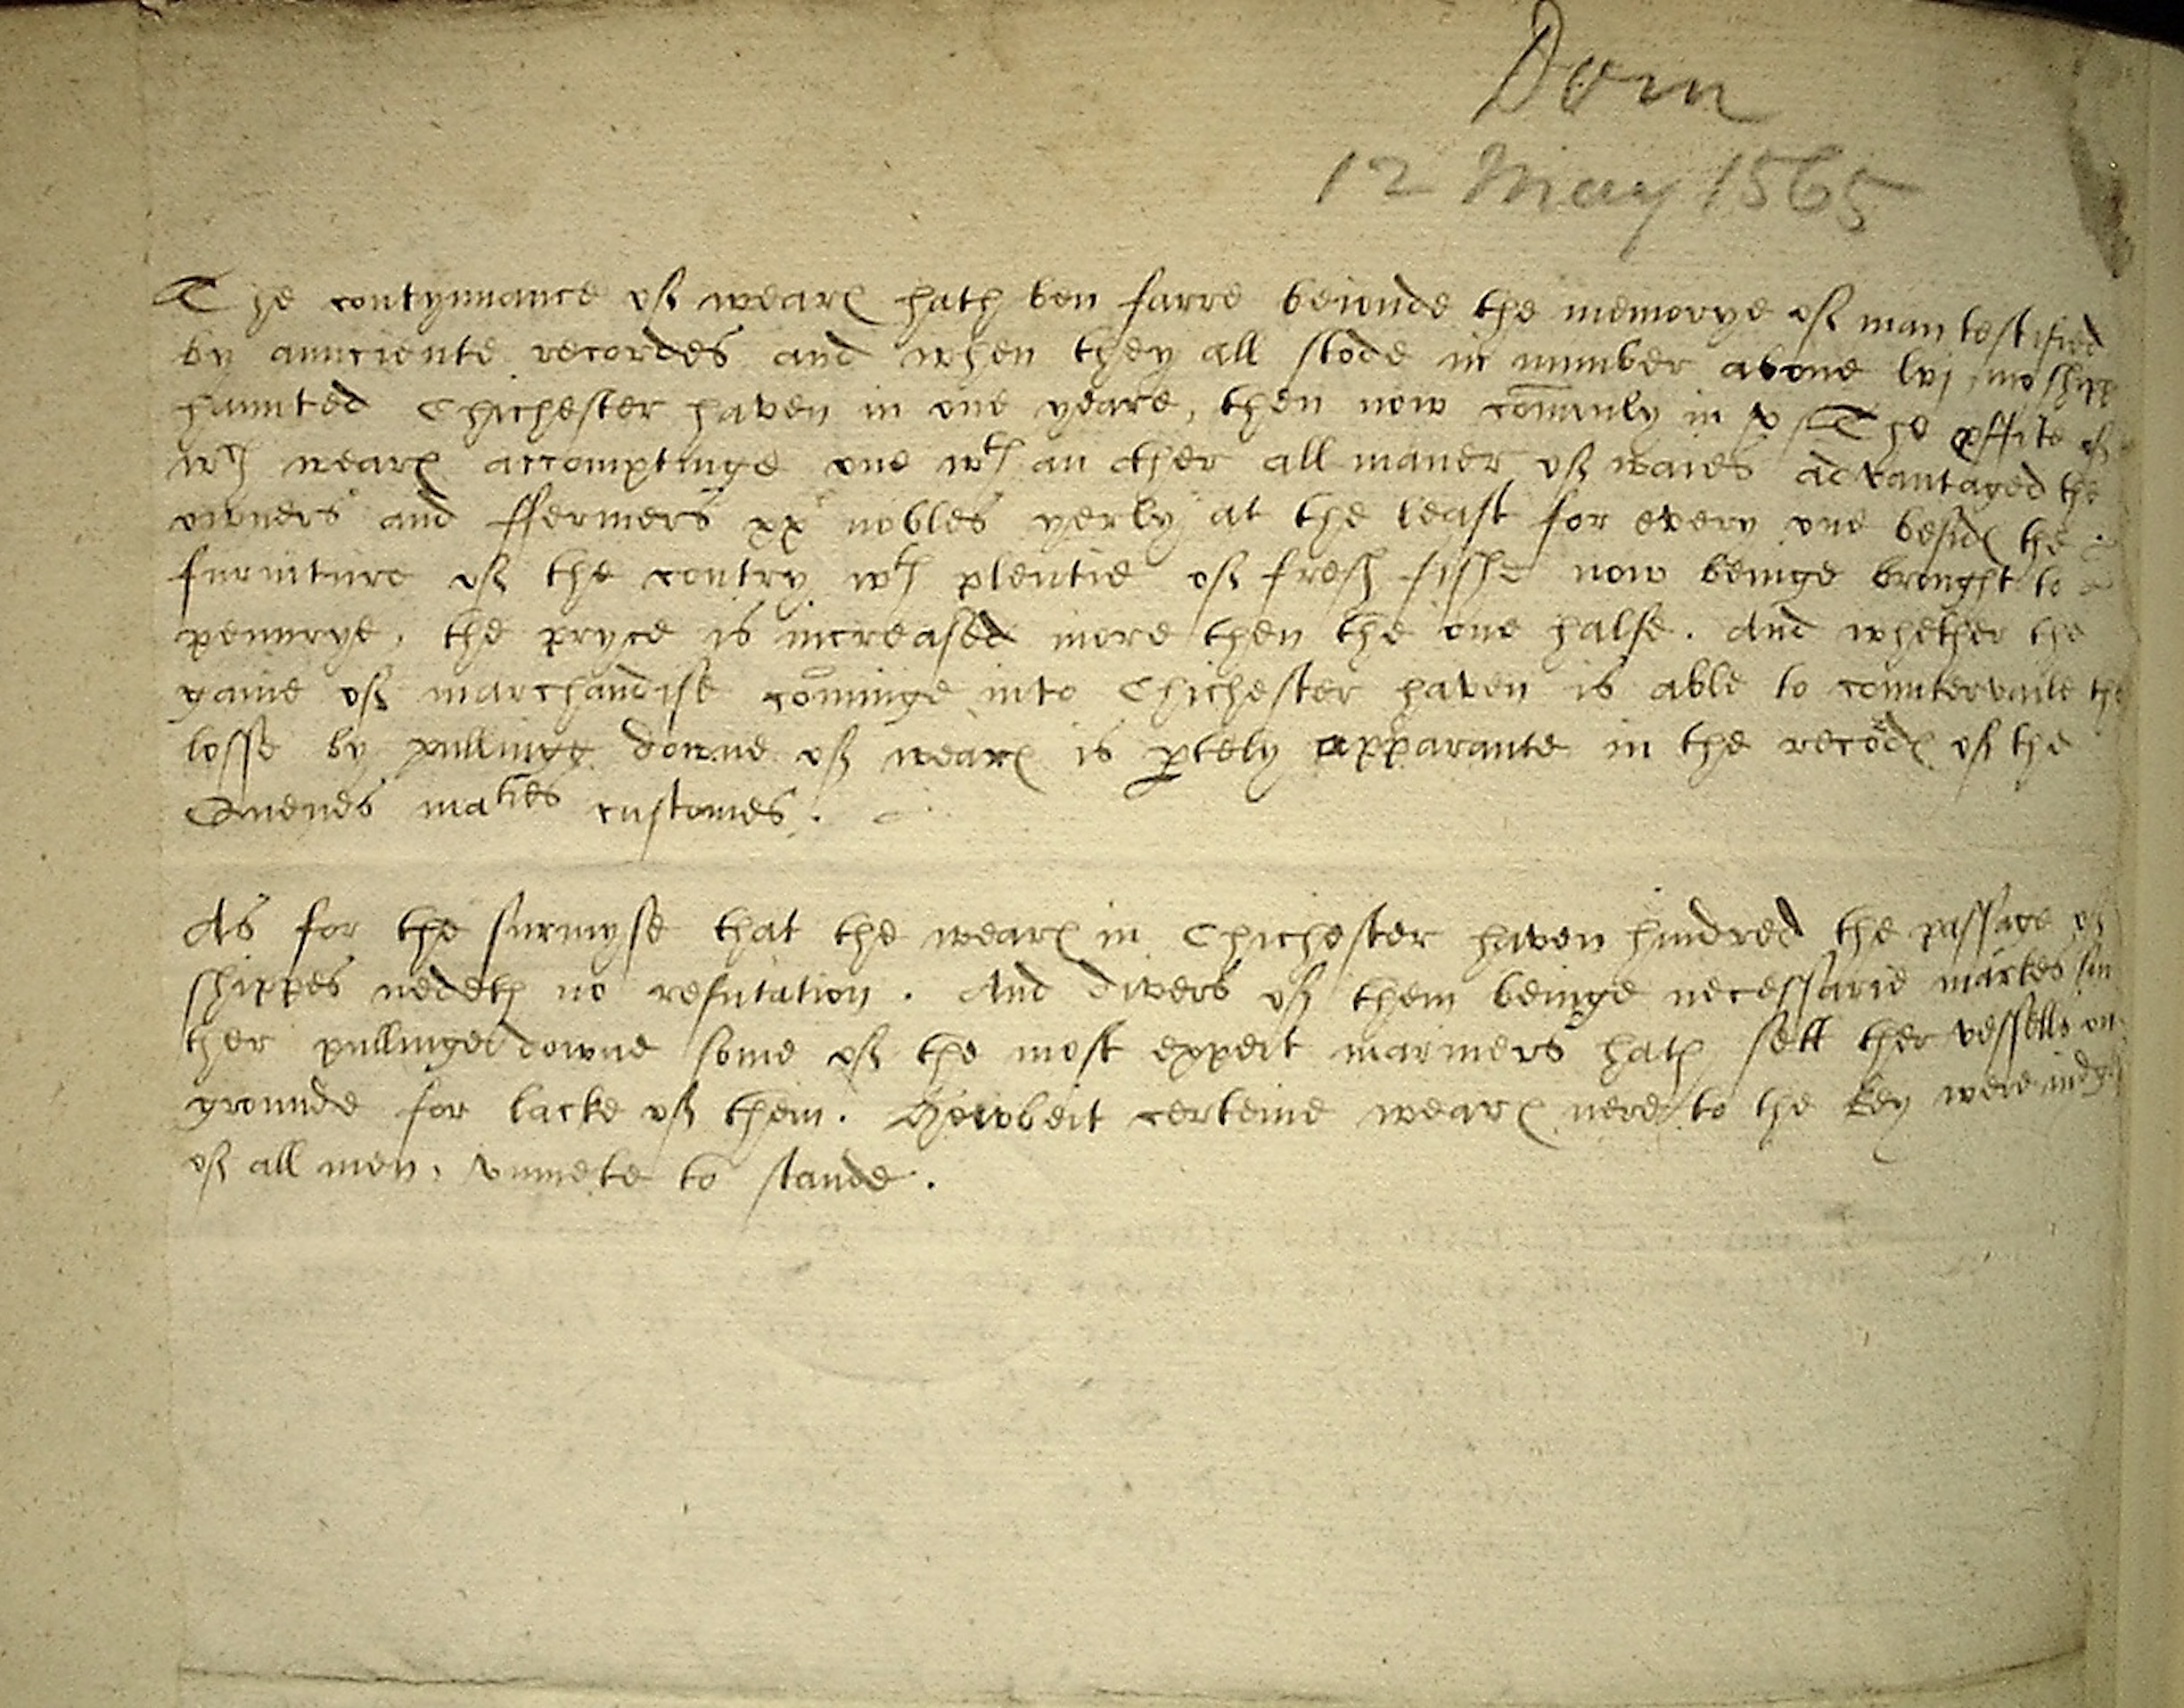 Dom
12 May 1565
The contynuance of weares hath ben farre beionde the memorye of man testified
by aunciente recordes and when they all stode in number above lvj, mo shipp
haunted Chichester haven in one yeare, then now com̄enly in x / The proffite of
wch weares accomptinge one wth an other all maner of waies advantaged the
owners and ffermers xx nobles yerly at the least for every one besides the
furniture of the contry wth plentie of fresh fishe now beinge brought to
penurye, the pryce is increased more then the one halfe. And whether the
gaine of marchandise cōminge into Chichester haven is able to countervaile the
losse by pullinge downe of weares is ptely apparante in the recōdes of the
Quenes maties customes.
As for the surmyse that the weares in Chichester haven hindred the passage of
shippes nedeth no refutation. And divers of them beinge necessarie markes sin
ther pullinge downe some of the most expert mariners hath sett ther vessells on
grounde for lacke of them. Howbeit certeine weares nere to the key were
of all men, vnmete to stande.